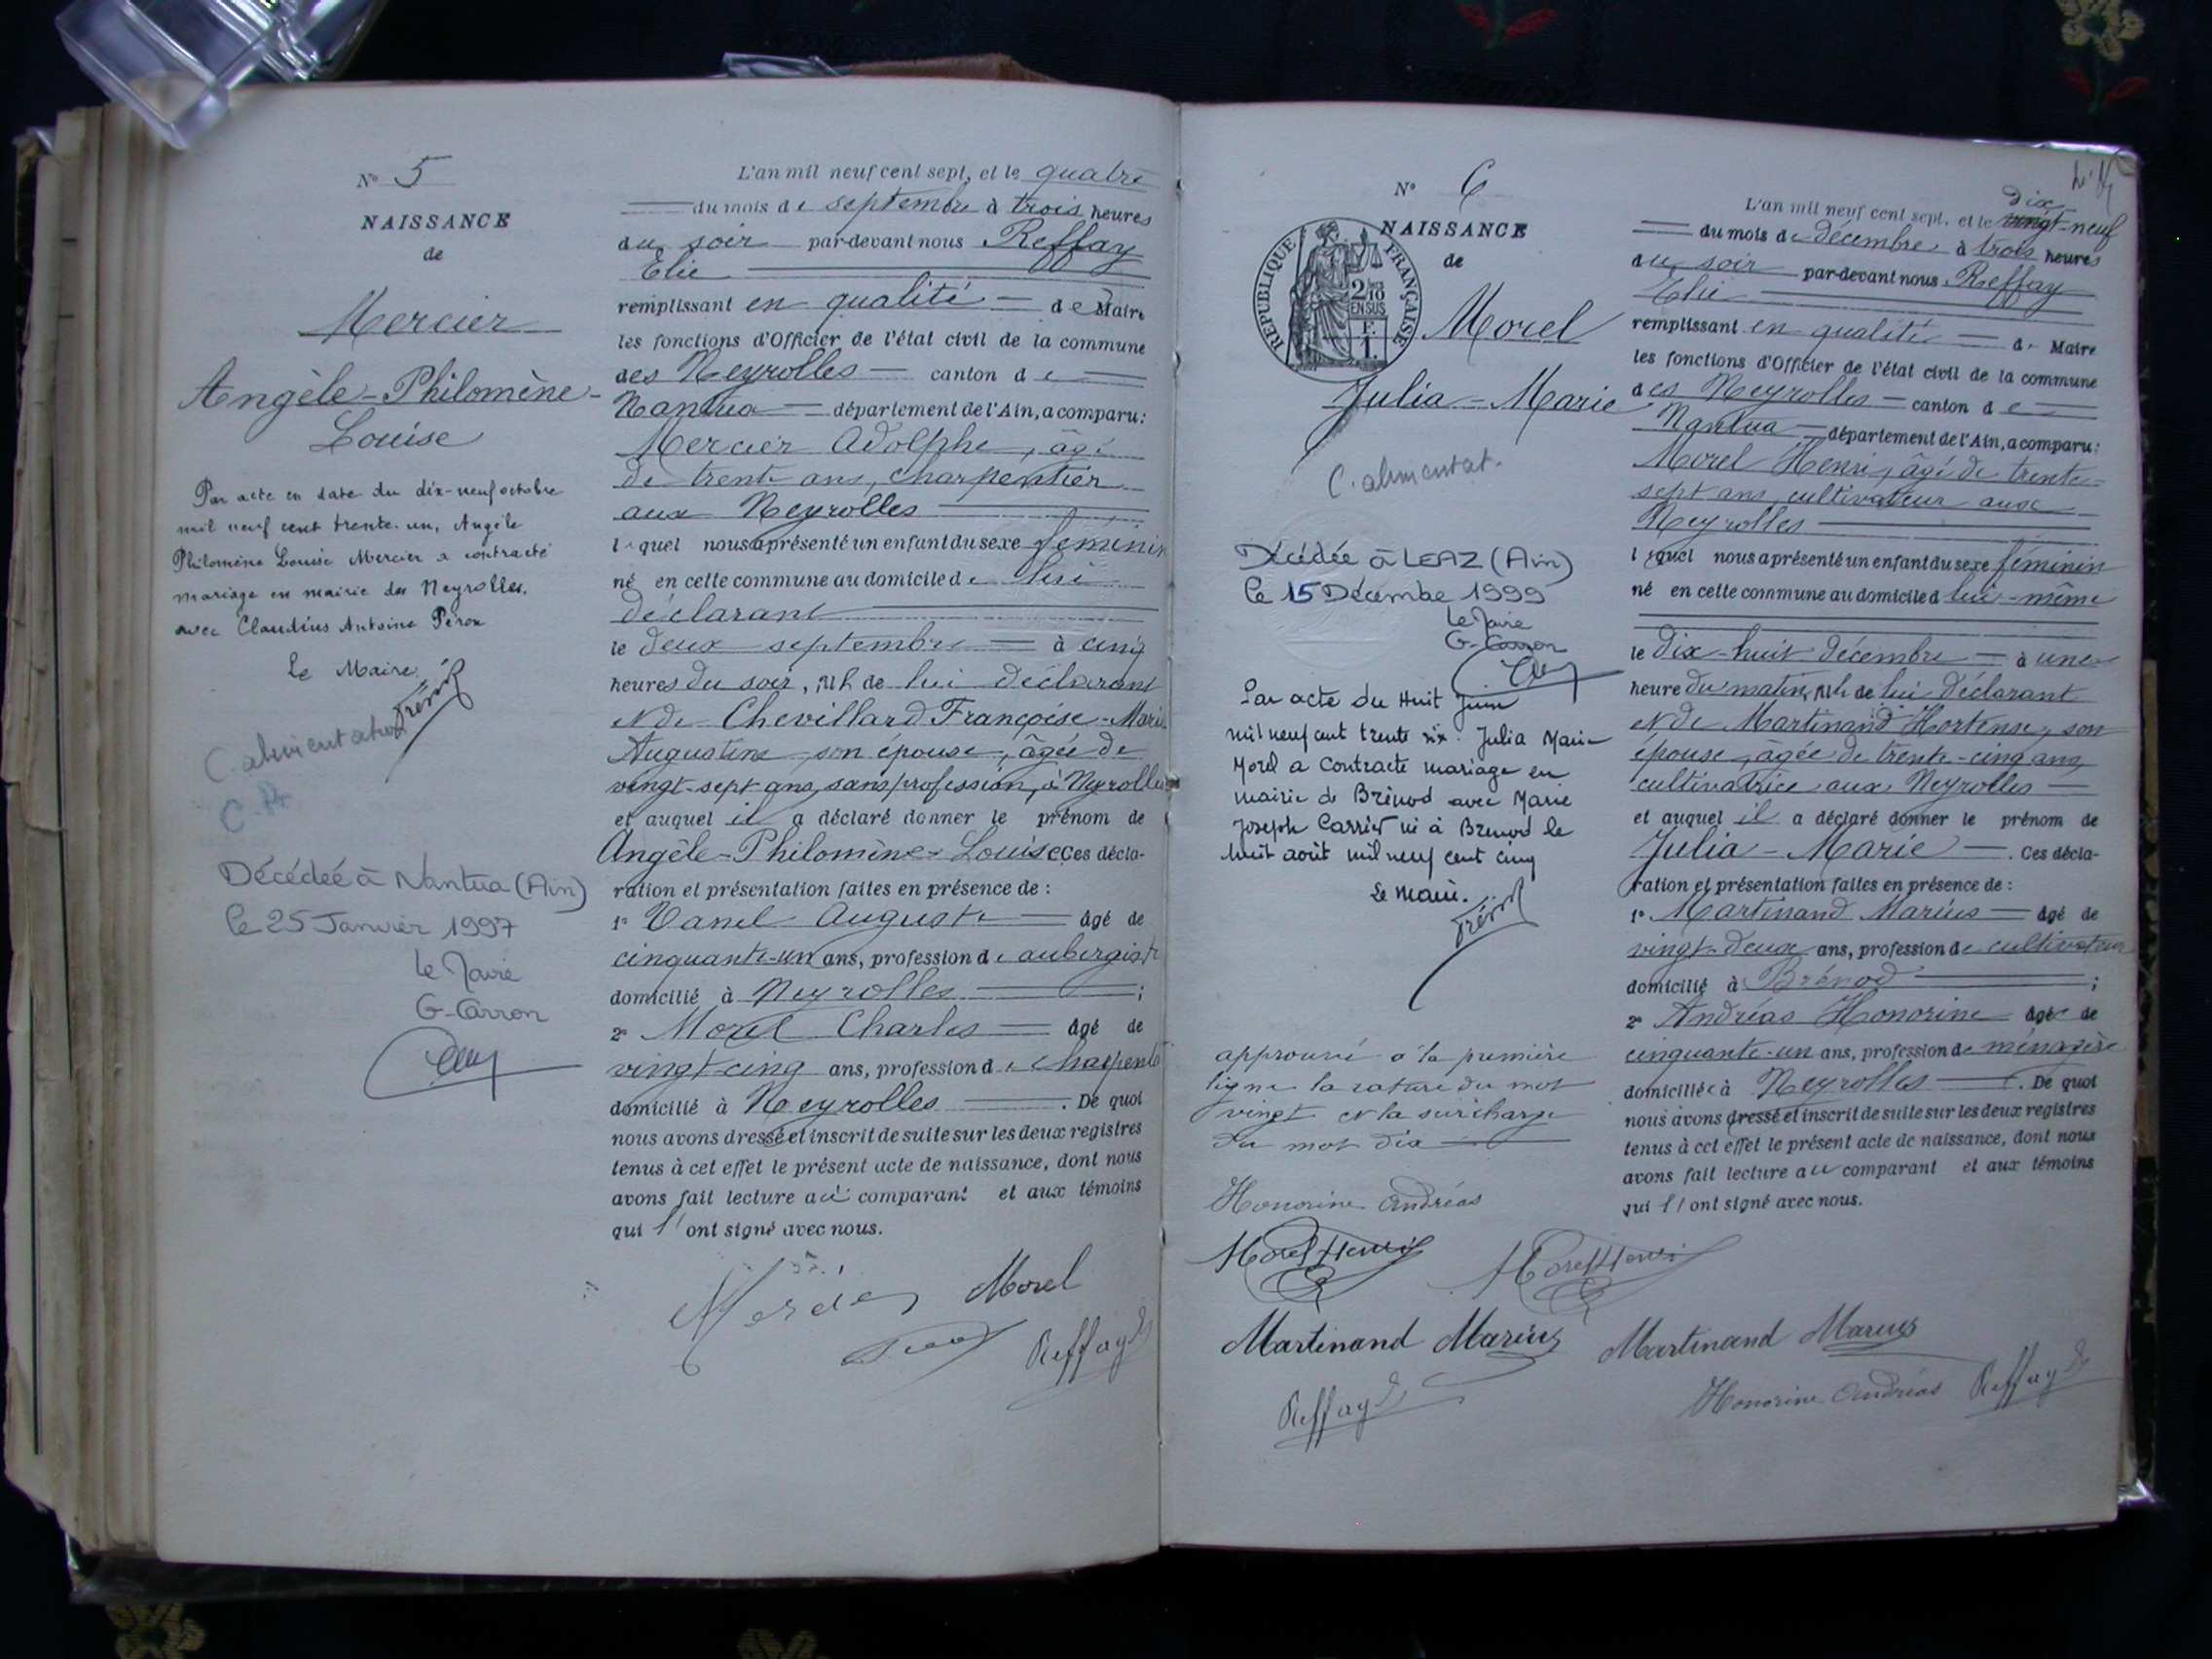 N° 5
NAISSANCE
de
Mercier
Angèle-Philomène-
Louise
Par acte en date du dix-neuf octobre
mil neuf cent trente-un, Angèle
Philomène Louise Mercier a contracté
mariage en mairie des Neyrolles.
avec Claudius Antoine Péron
Le Maire,
C. alimentation
Décédée à Nantua (Ain)
le 25 Janvier 1997
Le Maire
G-Carron
L'an mil neuf cent sept, et le quatre
du mois de septembre à trois heures
du soir par-devant nous Reffay
Elie
remplissant en qualité de Maire
les fonctions d'Officier de l'état civil de la commune
des Neyrolles canton de
Nantua département de l'Ain, a comparu:
Mercier Adolphe, âgé
de trente ans, charpentier
aux Neyrolles
lequel nous a présenté un enfant du sexe féminin
né en cette commune au domicile de lui
déclarant
le deux septembre à cinq
heures du soir, fille de lui déclarant
et de Chevillard Françoise-Marie
Augustine son épouse, âgée de
vingt-sept ans, sans profession, à Neyrolles
et auquel il a déclaré donner le prénom de
Angèle-Philomène-Louise Ces décla-
ration et présentation faites en présence de :
1° Vanel Auguste âgé de
cinquante-un ans, profession d'aubergiste
domicilié à Neyrolles ;
2° Morel Charles âgé de
vingt-cinq ans, profession de charpentier
domicilié à Neyrolles . De quoi
nous avons dressé et inscrit de suite sur les deux registres
tenus à cet effet le présent acte de naissance, dont nous
avons fait lecture au comparant et aux témoins
qui l'ont signé avec nous.
Mercier Morel
Reffay
N° 6
NAISSANCE
de
REPUBLIQUE FRANÇAISE
2/10
EN SUS
F.
1.
Morel
Julia-Marie
C. alimentat.
Décédée à LEAZ (Ain)
le 15 Décembre 1999
Le Maire
G-Carron
Par acte du Huit Juin
mil neuf cent trente six. Julia Marie
Morel a contracté mariage en
mairie de Brénod avec Marie
Joseph Carrier né à Brenod le
huit août mil neuf cent cinq
Le Maire.
approuvé à la première
ligne la rature du mot
vingt et la surcharge
du mot dix
Honorine Andréas
Morel Henri
Martinand Marius
Reffay
dix
L'an mil neuf cent sept, et le vingt-neuf
du mois de décembre à trois heures
du soir par-devant nous Reffay
Elie
remplissant en qualité de Maire
les fonctions d'Officier de l'état civil de la commune
des Neyrolles canton de
Nantua département de l'Ain, a comparu:
Morel Henri, âgé de trente-
sept ans, cultivateur aux
Neyrolles
lequel nous a présenté un enfant du sexe féminin
né en cette commune au domicile d lui-même
le dix-huit décembre à une
heure du matin, fille de lui déclarant
et de Martinand Hortense, son
épouse, âgée de trente-cinq ans,
cultivatrice aux Neyrolles
et auquel il a déclaré donner le prénom de
Julia-Marie . Ces décla-
ration et présentation faites en présence de :
1° Martinand Marius âgé de
vingt-deux ans, profession de cultivateur
domicilié à Brénod ;
2° Andréas Honorine âgée de
cinquante-un ans, profession de ménagère
domiciliée à Neyrolles . De quoi
nous avons dressé et inscrit de suite sur les deux registres
tenus à cet effet le présent acte de naissance, dont nous
avons fait lecture au comparant et aux témoins
qui l'ont signé avec nous.
Morel Henri
Martinand Marius
Honorine Andréas Reffay